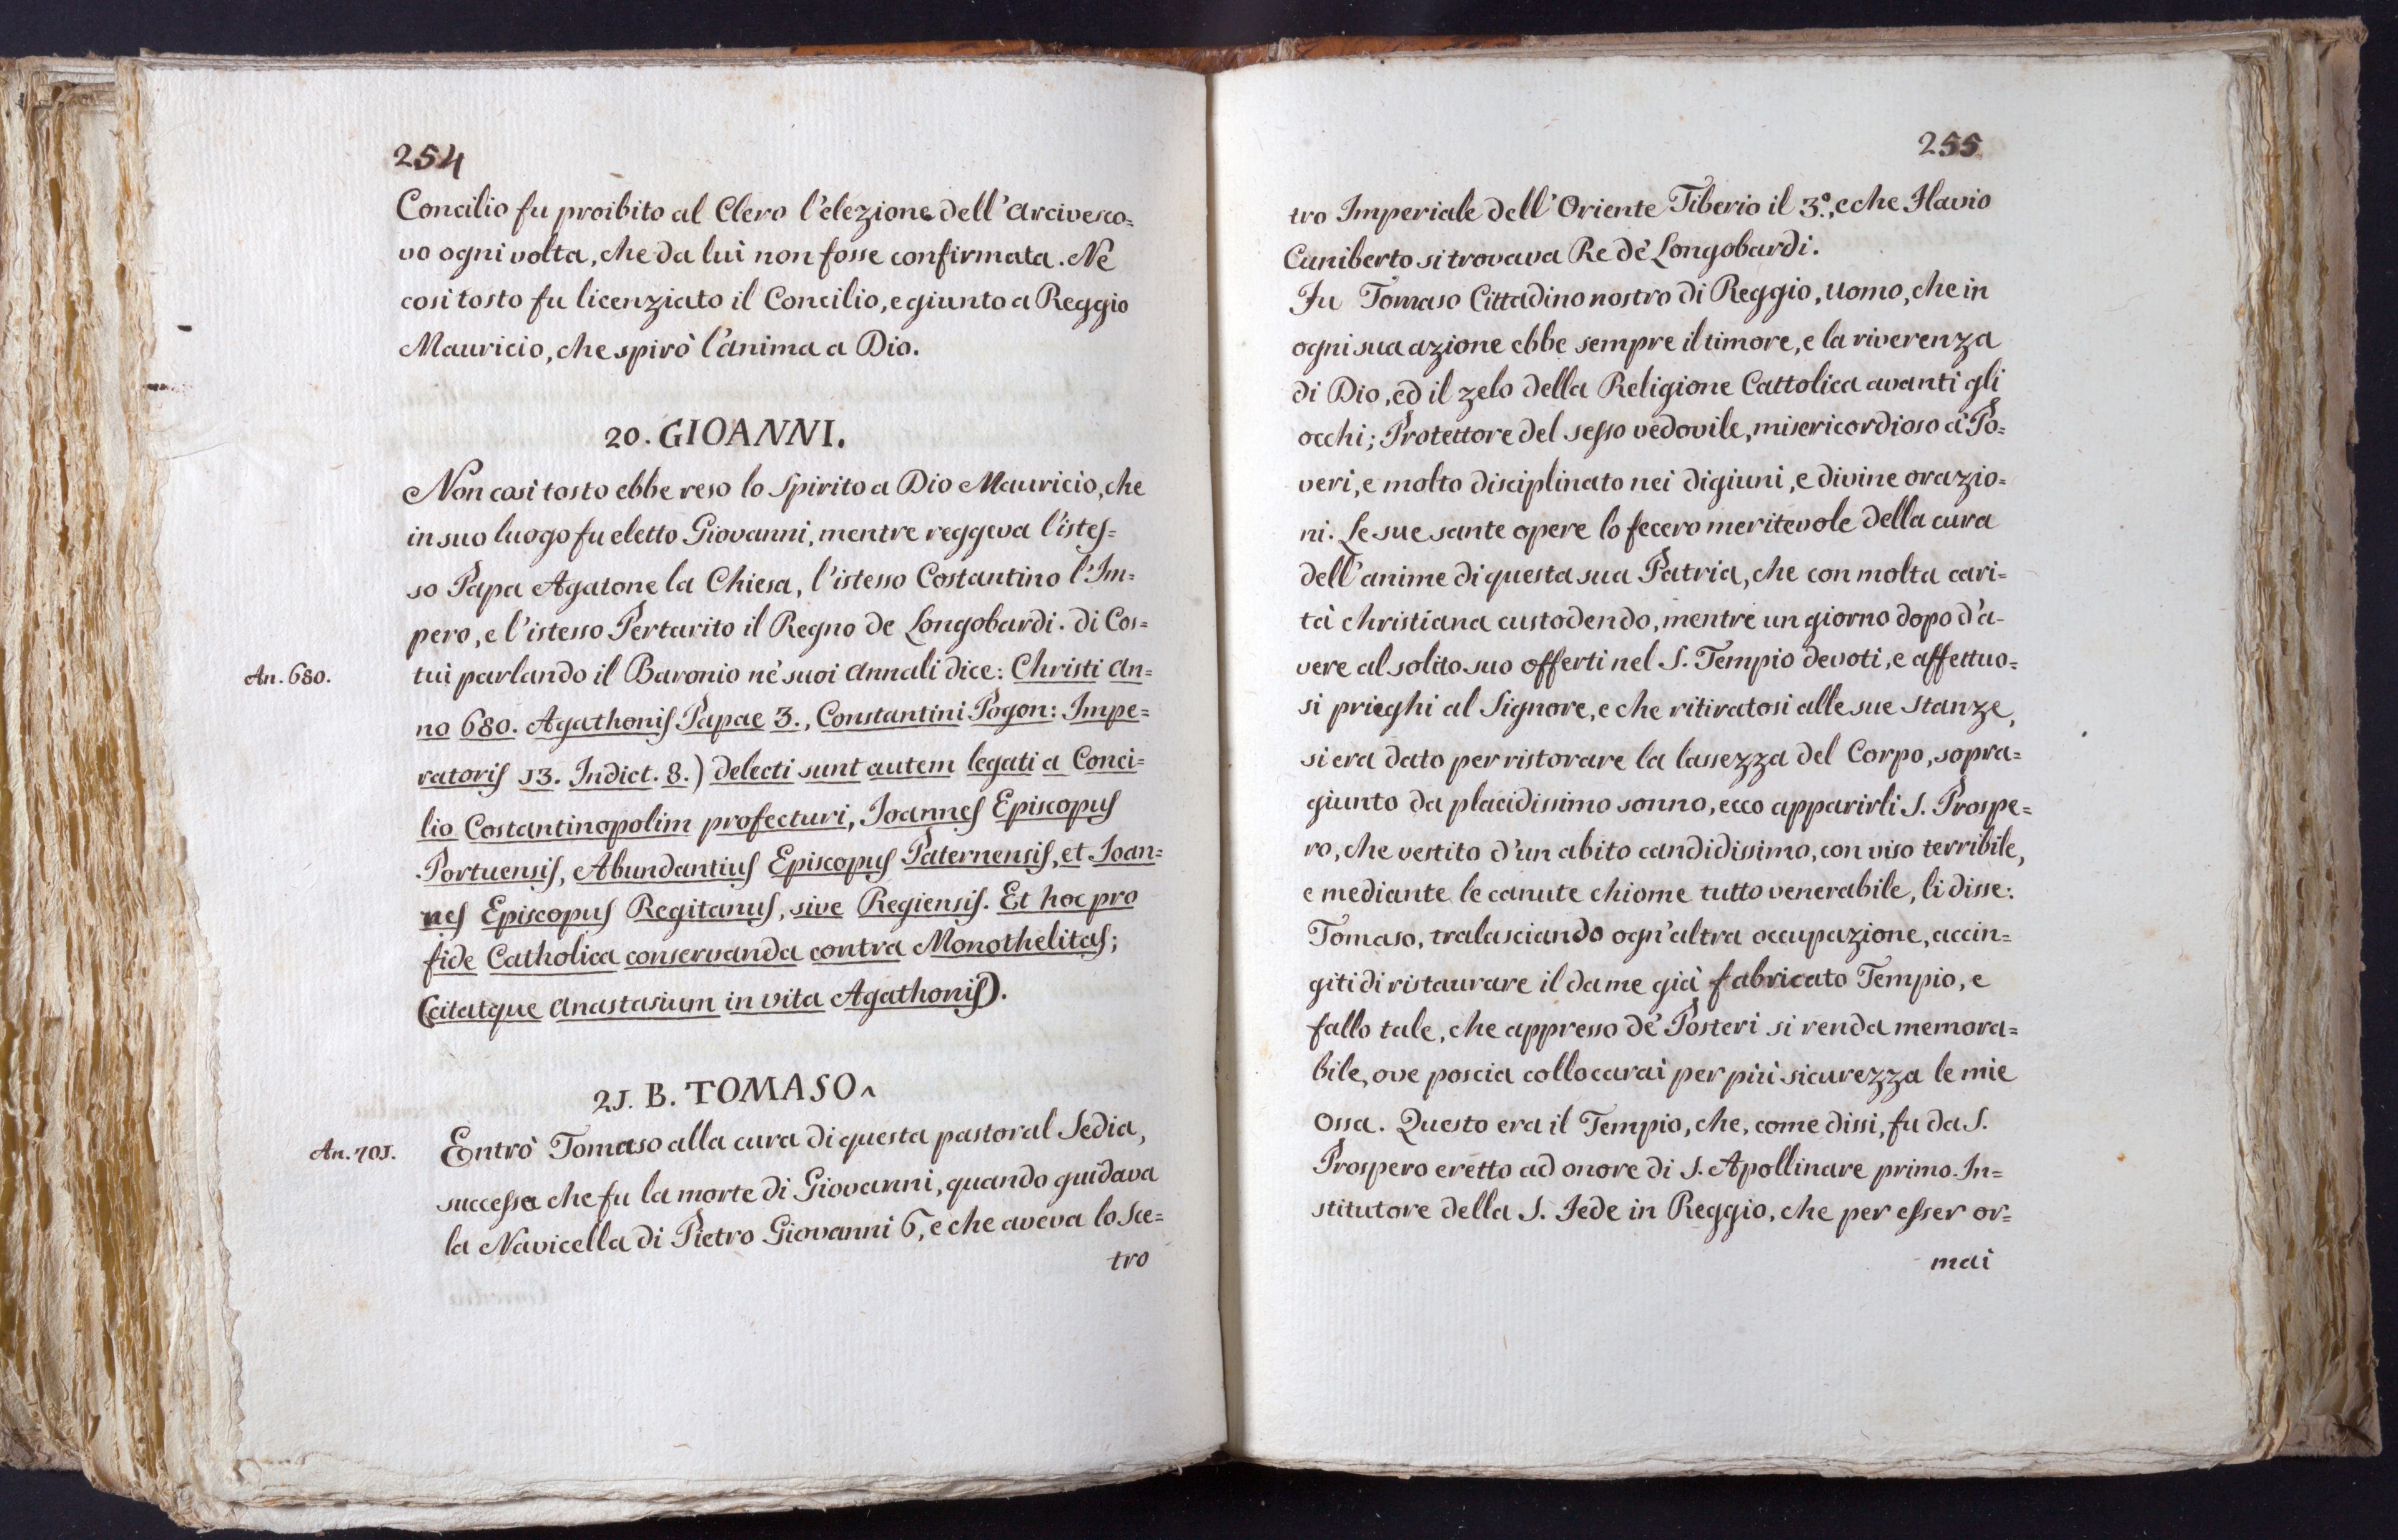 254
Concilio fu proibito al Clero l'elezione dell'Arcivesco=
vo ogni volta, che da lui non fosse confirmata. Nè
così tosto fu licenziato il Concilio, e giunto a Reggio
Mauricio, che spirò l'anima a Dio.
20. GIOANNI.
Non così tosto ebbe reso lo Spirito a Dio Mauricio, che
in suo luogo fu eletto Giovanni, mentre reggeva l'istes=
so Papa Agatone la Chiesa, l'istesso Costantino l'Im=
pero, e l'istesso Pertarito il Regno de Longobardi. di Cos=
An. 680.
tui parlando il Baronio nè suoi Annali dice: Christi An=
no 680. Agathonis Papae 3., Constantini Pogon: Impe=
ratoris 13. Indict. 8.) delecti sunt autem legati a Conci=
lio Costantinopolim profecturi, Joannes Episcopus
Portuensis, Abundantius Episcopus Paternensis, et Joan=
nes Episcopus Regitanus, sive Regiensis. Et hoc pro
fide Catholica conservanda contra Monothelitas;
(citatque Anastasium in vita Agathonis).
21. B. TOMASO^
An. 701.
Entrò Tomaso alla cura di questa pastoral Sedia,
successa che fu la morte di Giovanni, quando guidava
la Navicella di Pietro Giovanni 6, e che aveva lo Sce=
tro
255
tro Imperiale dell'Oriente Tiberio il 3.°, e che Flavio
Cuniberto si trovava Re dè Longobardi.
Fu Tomaso Cittadino nostro di Reggio, uomo, che in
ogni sua azione ebbe sempre il timore, e la riverenza
di Dio, ed il zelo della Religione Cattolica avanti gli
occhi; Protettore del sesso vedovile, misericordioso à Po=
veri, e molto disciplinato nei digiuni, e divine orazio=
ni. Le sue sante opere lo fecero meritevole della cura
dell'anime di questa sua Patria, che con molta cari=
tà christiana custodendo, mentre un giorno dopo d'a-
vere al solito suo offerti nel S. Tempio devoti, e affettuo=
si prieghi al Signore, e che ritiratosi alle sue stanze,
si era dato per ristorare la lassezza del Corpo, sopra=
giunto da placidissimo sonno, ecco apparirli S. Prospe=
ro, che vestito d'un abito candidissimo, con viso terribile,
e mediante le canute chiome tutto venerabile, li disse:
Tomaso, tralasciando ogn'altra occupazione, accin=
giti di ristaurare il da me già fabricato Tempio, e
fallo tale, che appresso dè Posteri si renda memora=
bile, ove poscia collocarai per più sicurezza le mie
Ossa. Questo era il Tempio, che, come dissi, fu da S.
Prospero eretto ad onore di S. Apollinare primo In=
stitutore della S. Fede in Reggio, che per esser or=
mai